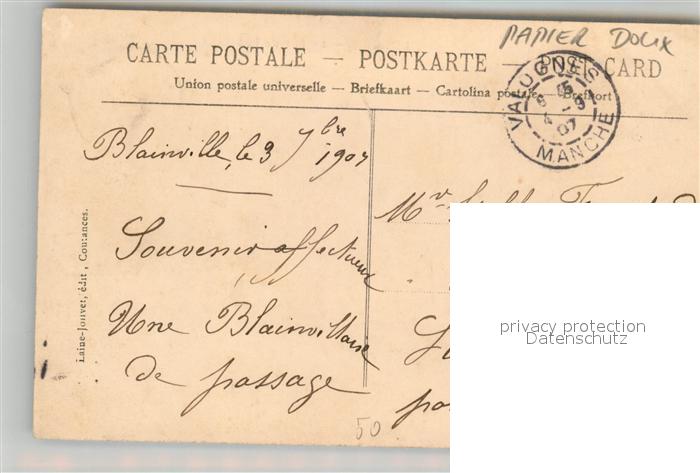 PAPIER DOUX
CARTE POSTALE — POSTKARTE — POST CARD
Union postale universelle — Briefkaart — Cartolina postale — Brefkort
VALOGNES
MANCHE
07
Blainville, le 3 7bre 1907
Mr
Souvenir affectueux
Une Blainvillaise
de passage
Laine-Jolivet, édit, Coutances.
50
privacy protection
Datenschutz